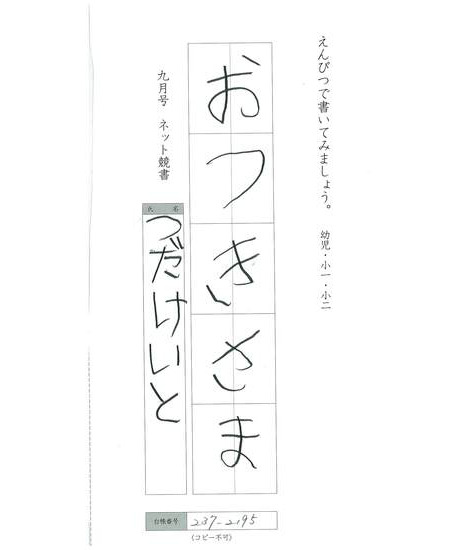 えんぴつで書いてみましょう。 幼児・小一・小二
おつきさま
九月号 ネット競書
氏 名
つだけいと
台帳番号 237-2195
(コピー不可)